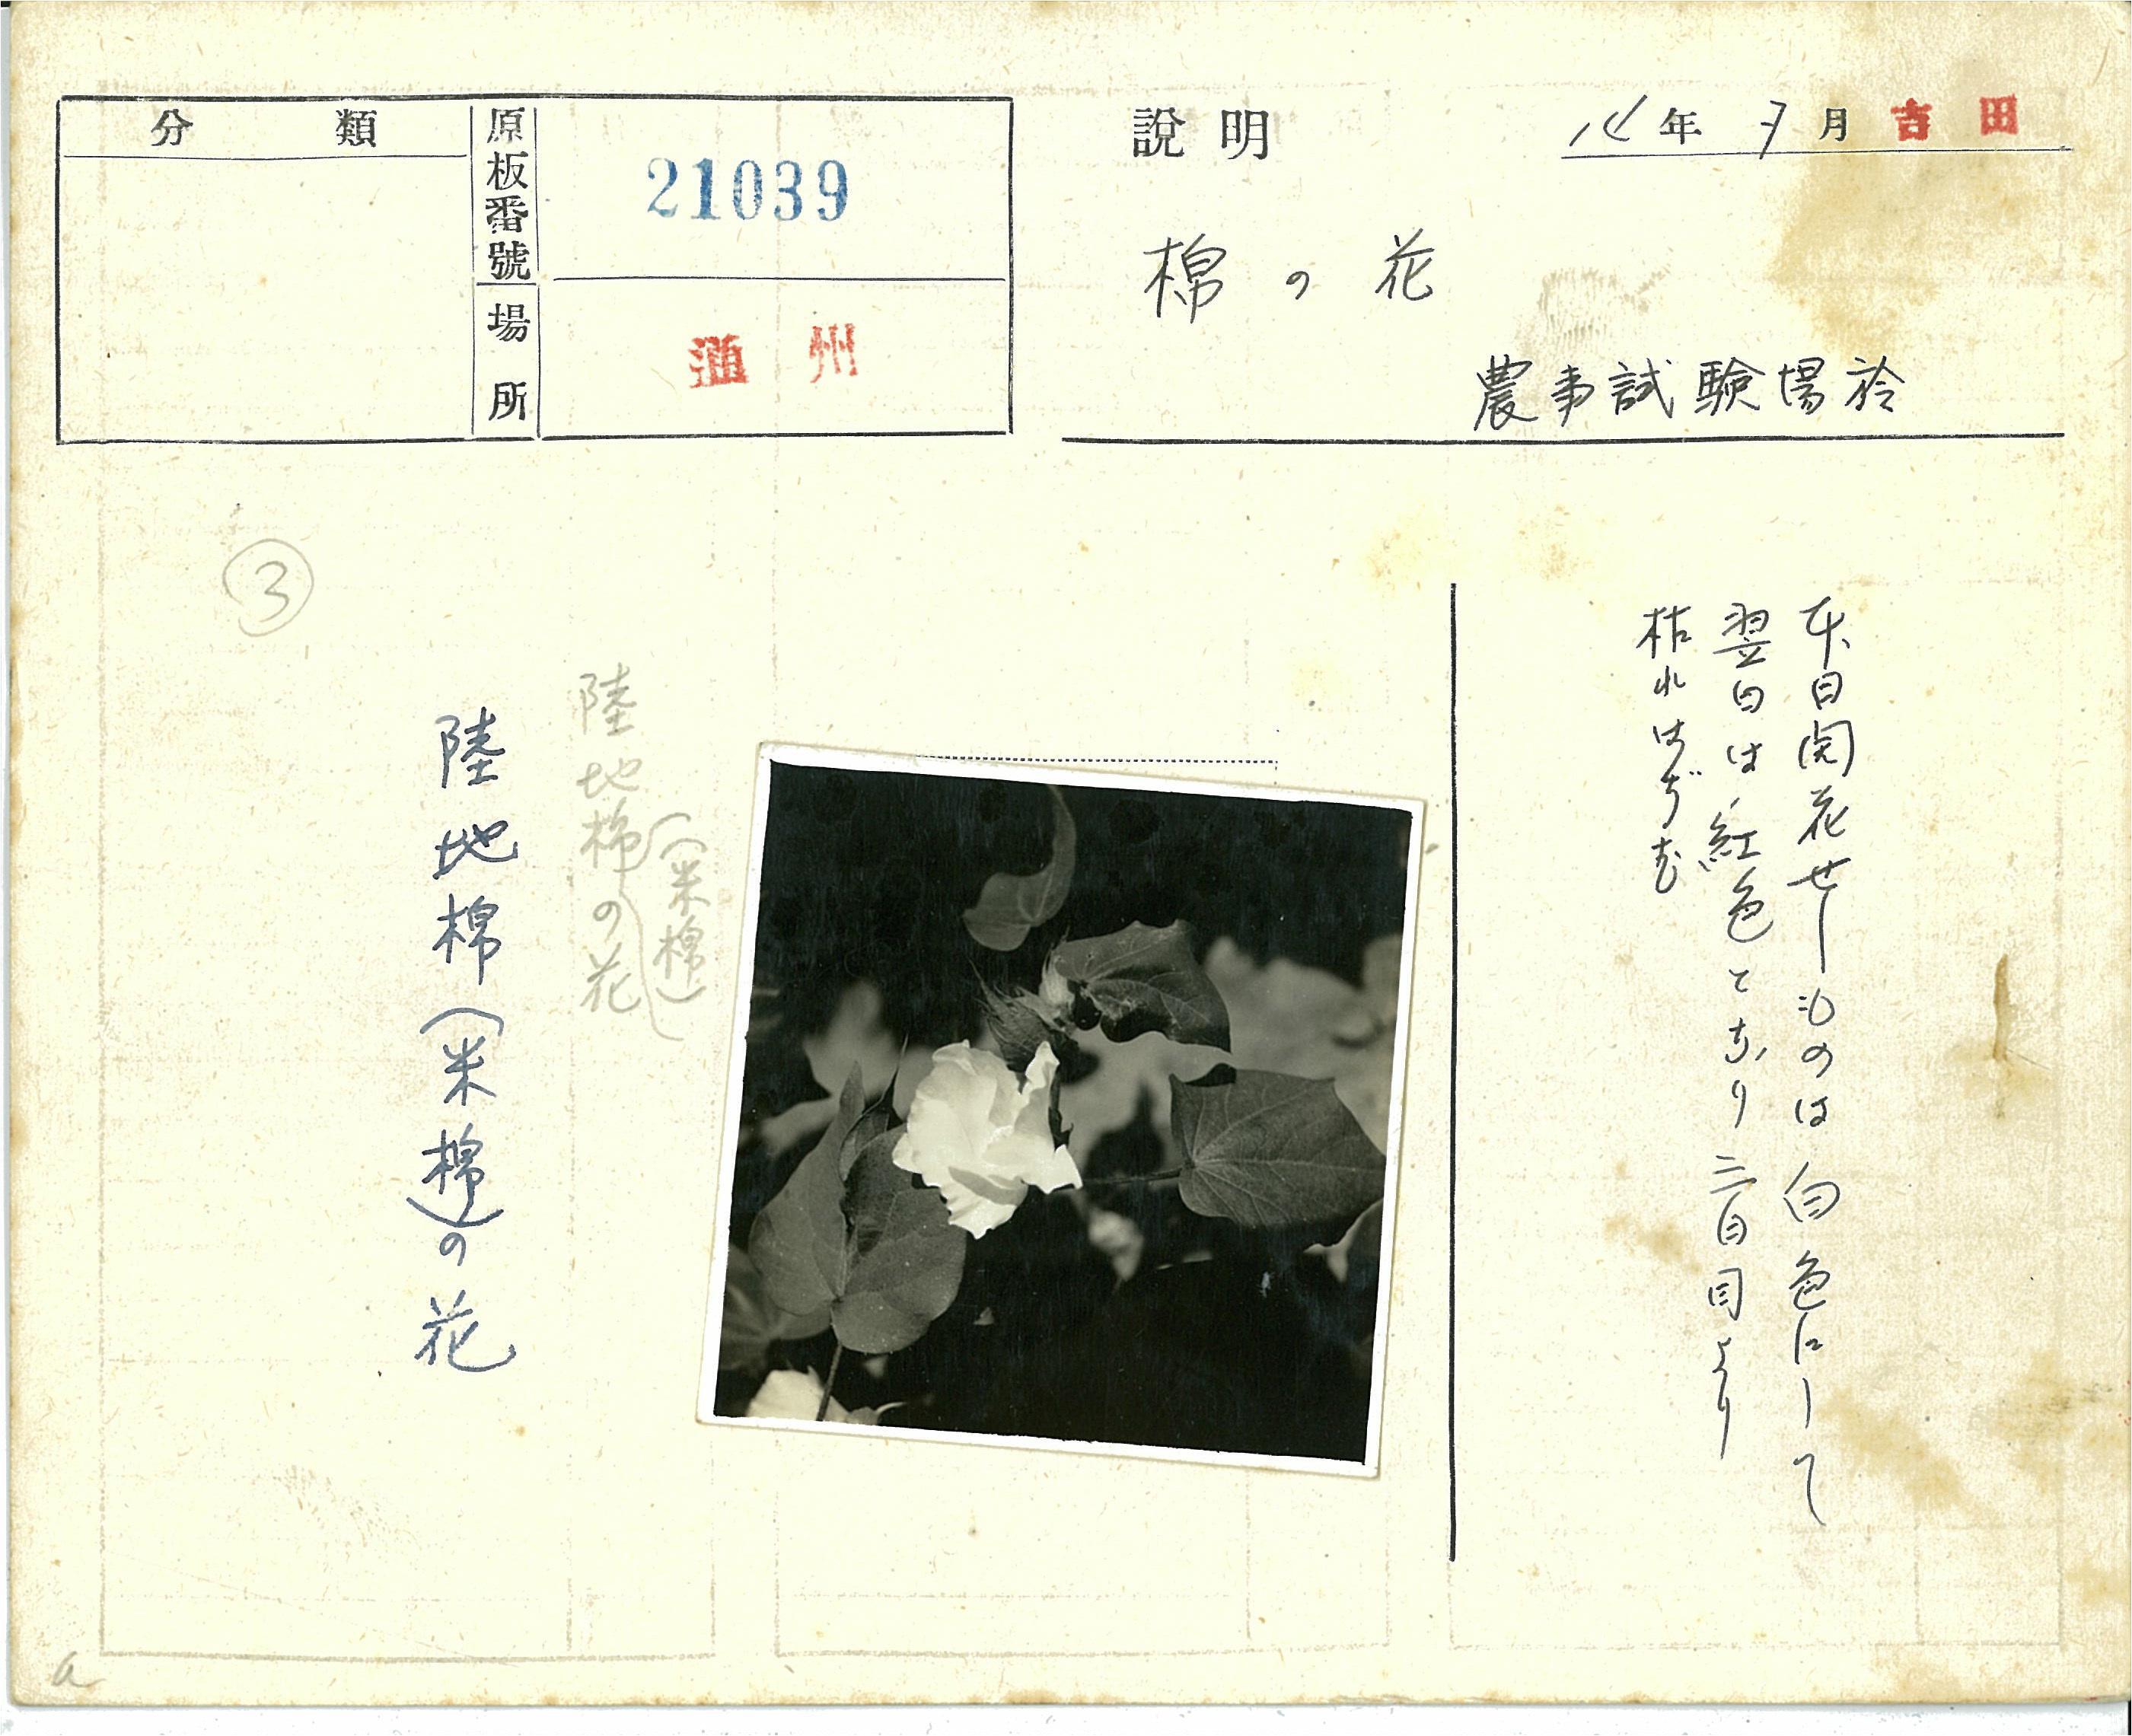 分類
原板番號
21039
場所
通州
說明
年 月 吉田
棉の花
農事試験場於
本日開花せしものは白色にして
翌日は紅色となり二日目より
枯れはじむ
③
陸地棉の花
(米棉)
陸地棉(米棉)の花
a